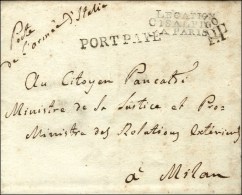 Poste
de l'armée d'Italie
LEGATION
CISALPINE
A PARIS
PORT PAYÉ
PP
Au Citoyen Pancaldi
Ministre de la Justice et Pro
Ministre des Relations Extérieures
à Milan